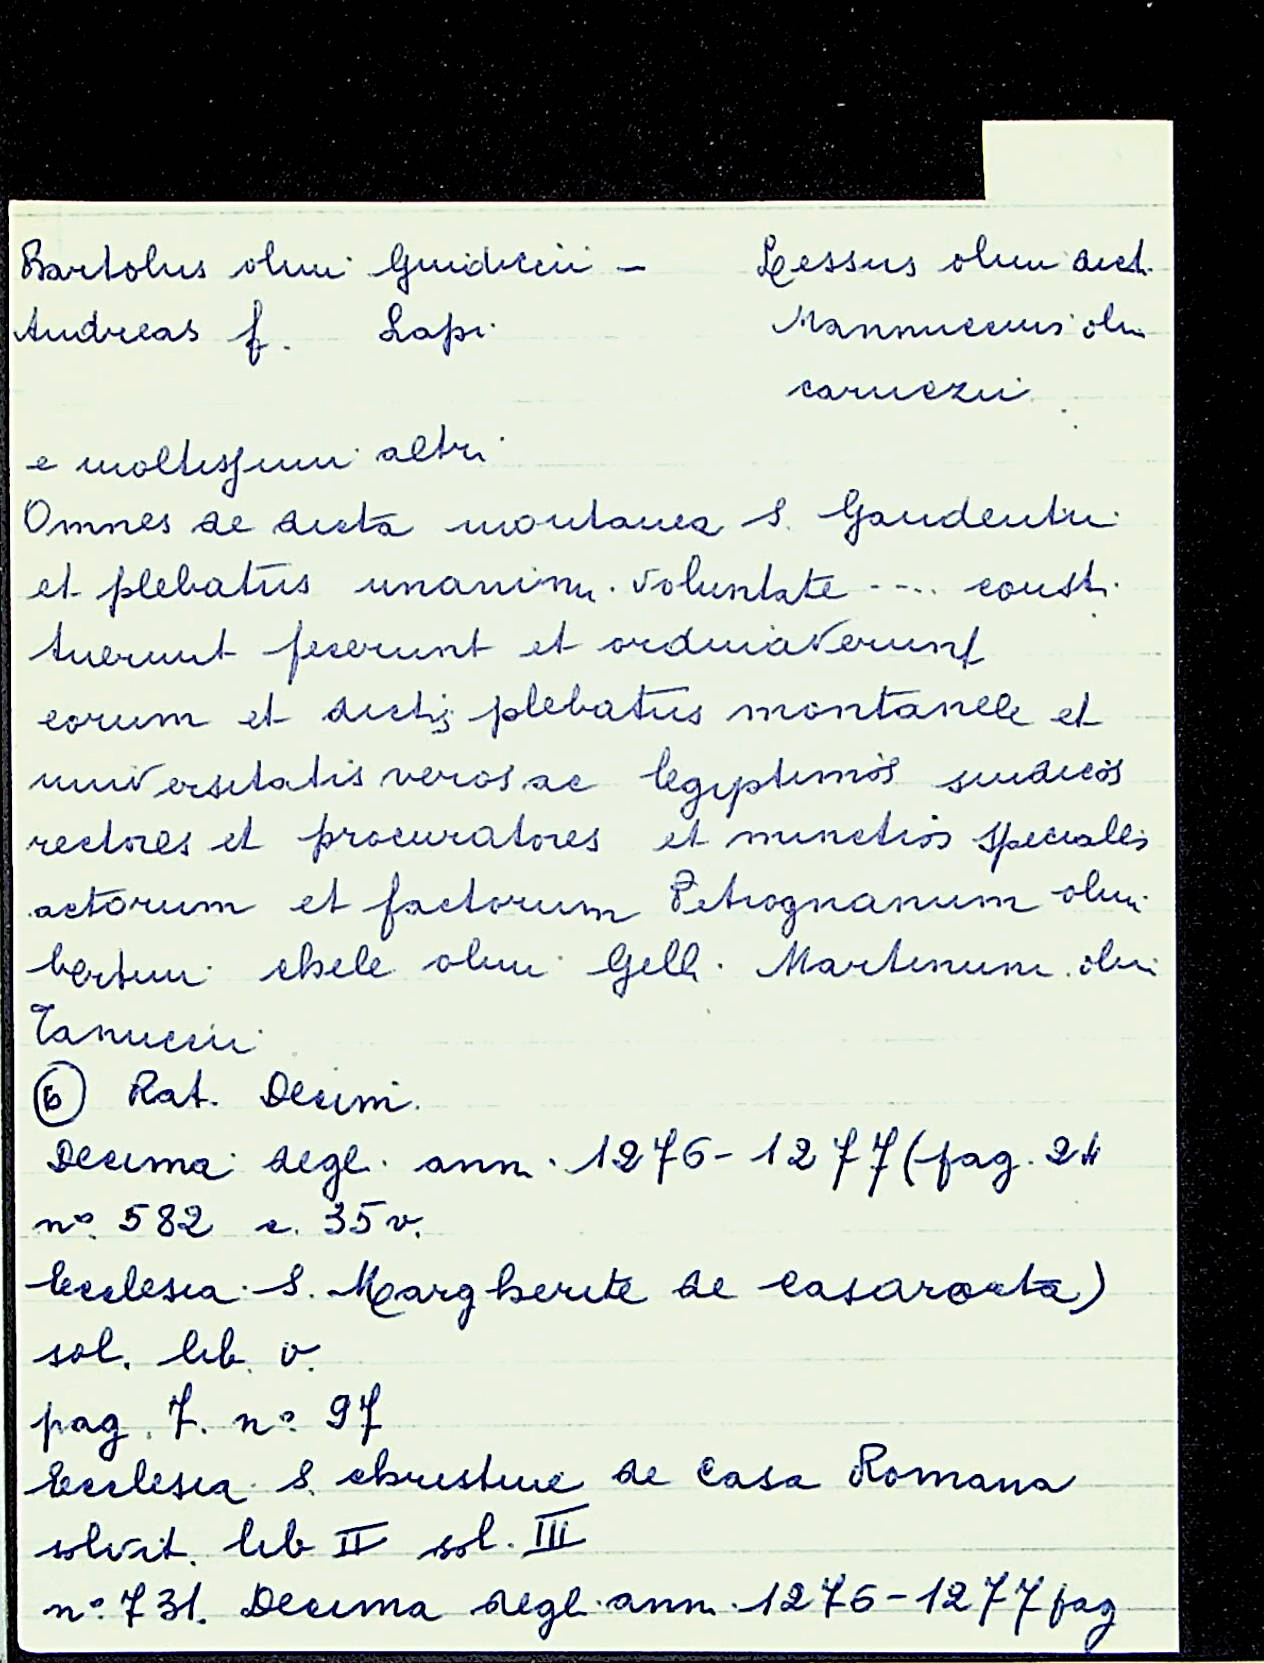 Bartolus olim Guidiccii – Lessus olim dict.
Andreas f. Lapi Mannuccius olim
caruczii
e moltissimi altri
Omnes de dicta montanea S. Gaudentii
et plebatus unanimi voluntate ---. consti
tuerunt fecerunt et ordinaverunt
eorum et dictis plebatus montanee et
universitatis veros ac legiptimos sindicos
rectores et procuratores et nunctios speciales
actorum et factorum Petrognanum olim
bertini chele olim Gelli. Martinum olim
Tanuccii
⑥ Rat. Decim.
Decima degli ann. 1276-1277 (pag. 24
n° 582 c. 35 v.
Ecclesia S. Margherite de Casarocta)
sol. lib. v.
pag. 7. n° 97
Ecclesia S. christine de Casa Romana
solvit. lib II sol. III
n° 731. Decima degli ann. 1276-1277 pag